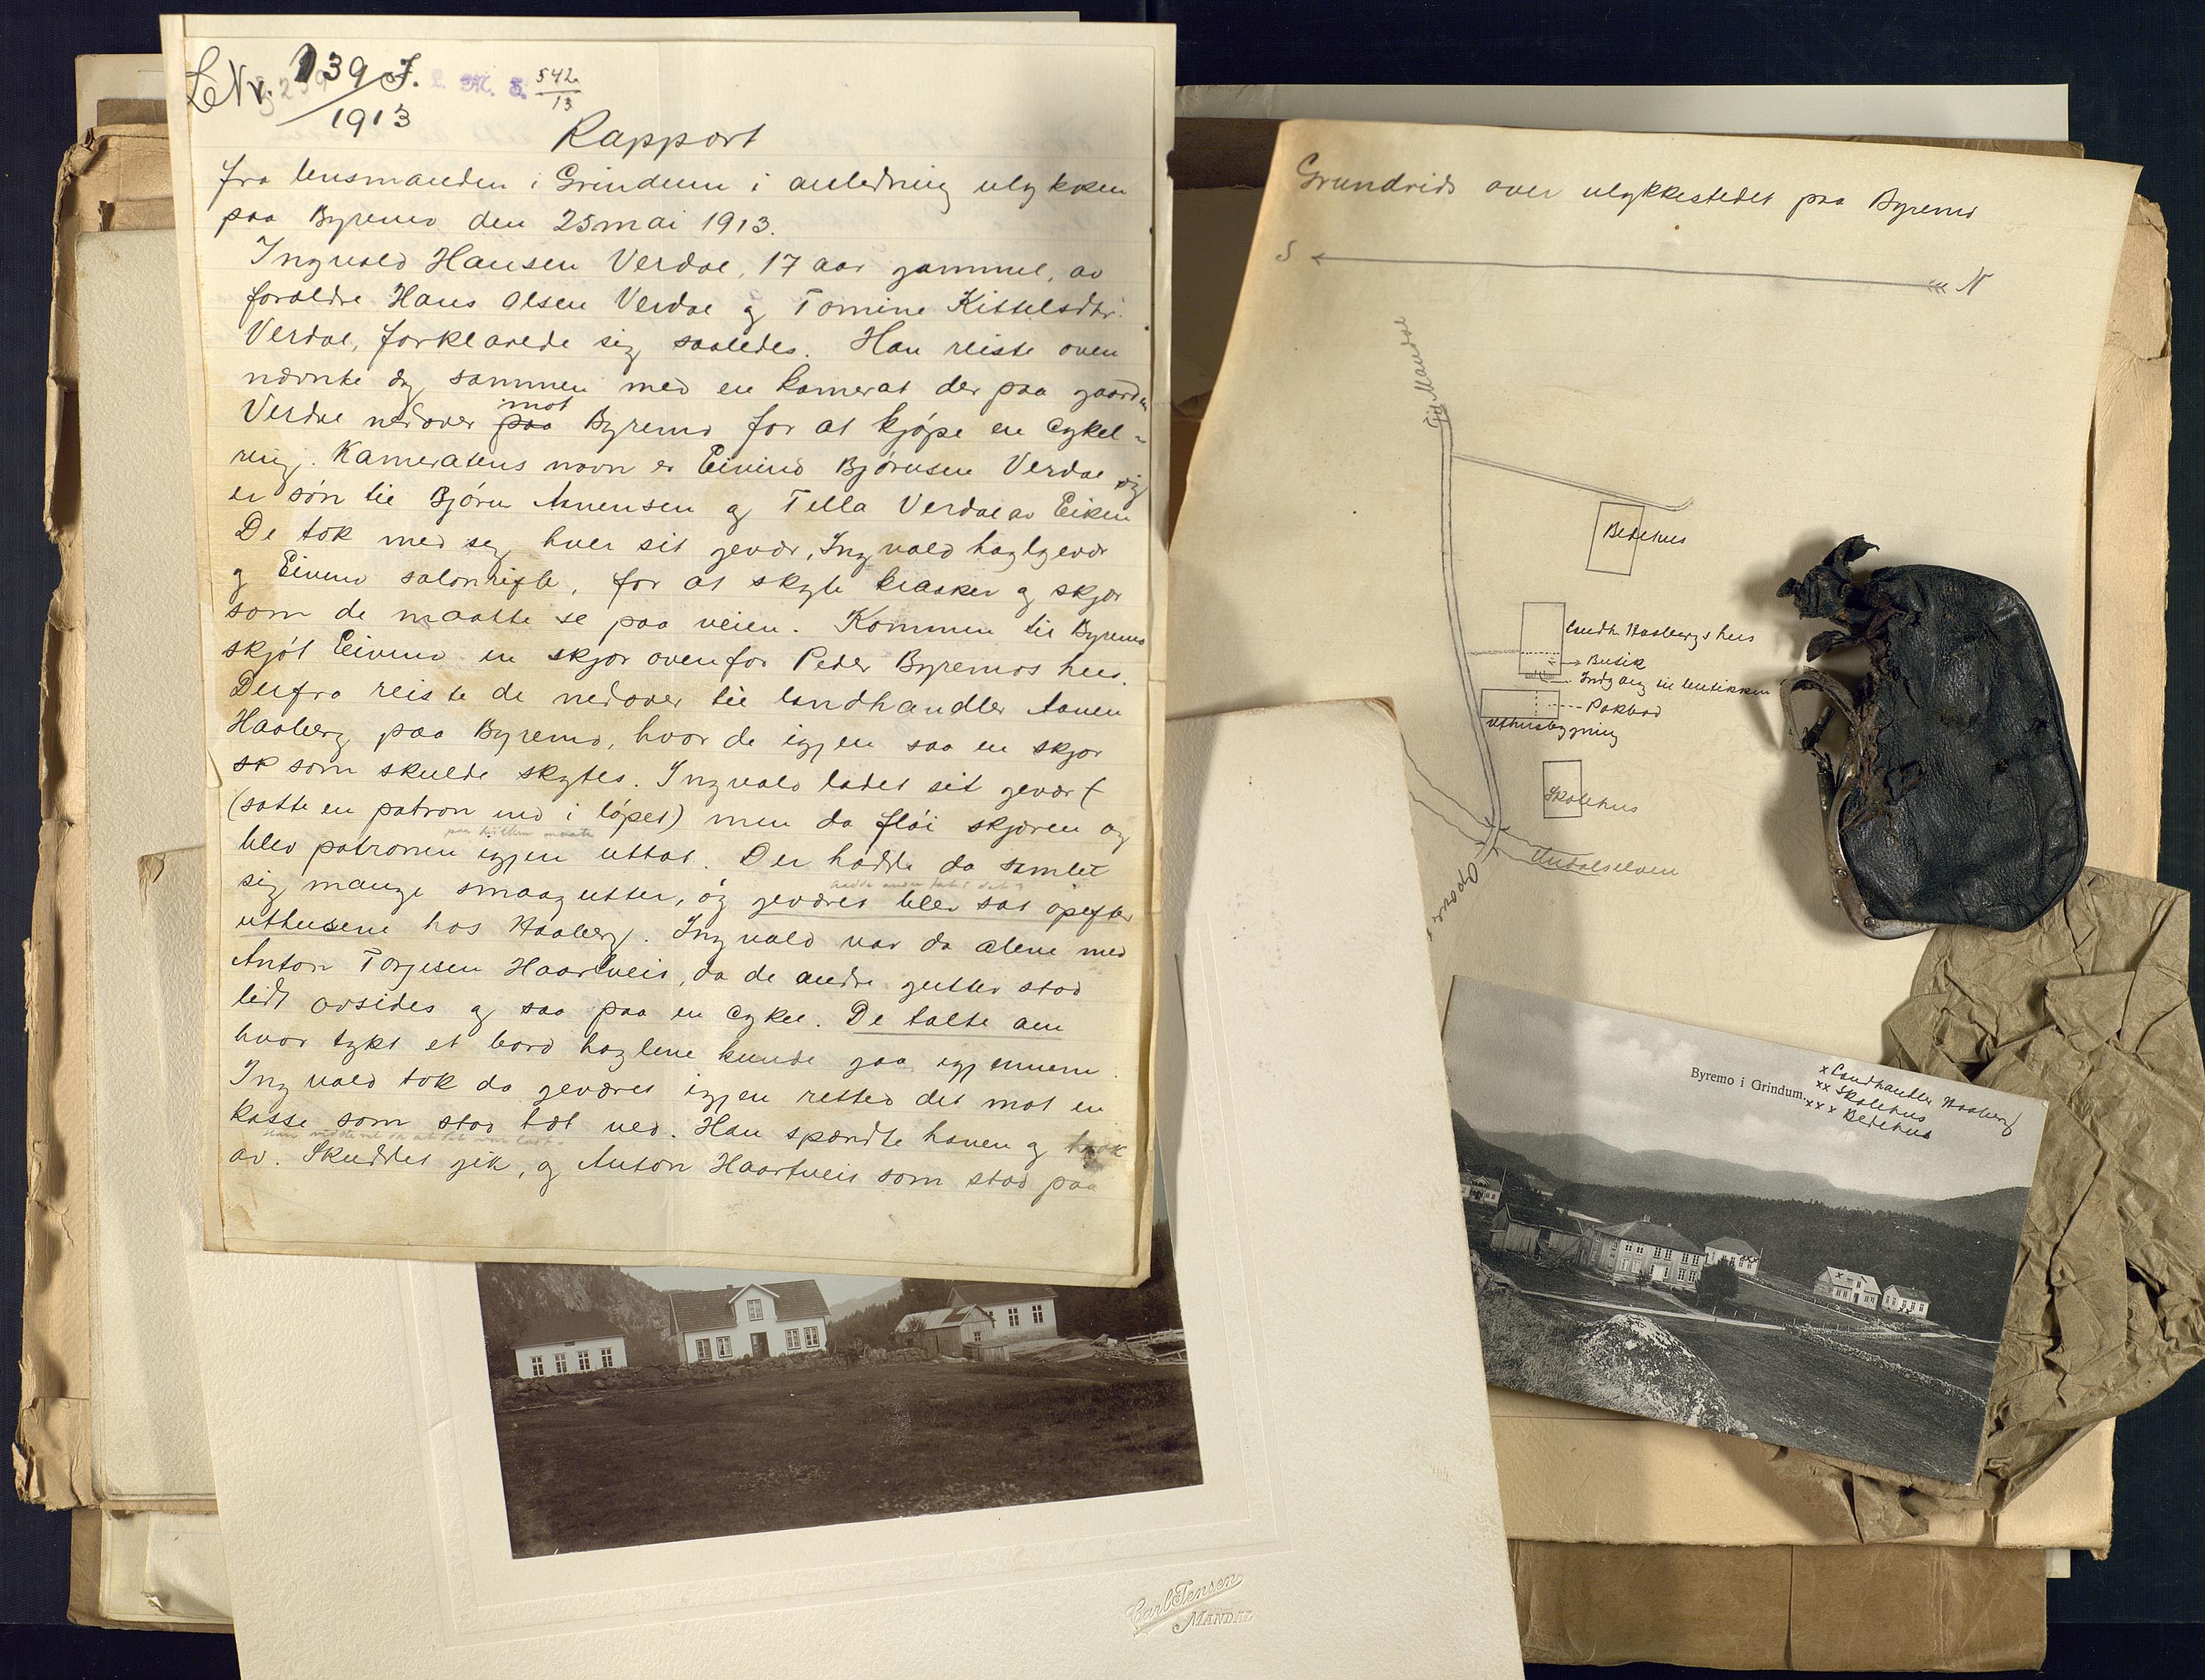 L Nr. 139 J.
1913
L. M. S. 542
13
Rapport
fra lensmanden i Grindum i anledning ulykken
paa Byremo den 25 mai 1913.
Ingvald Hansen Verdae, 17 aar gammel, av
foraldre Hans Olsen Verdae og Tomine Kittelsdtr.
Verdae, forklarede sig saaledes. Han reiste oven
nævnte dg sammen med en kamerat der paa gaarden
Verdae nedover paa mot Byremo for at kjøpe en cykel-
ring. Kameratens navn er Eivind Bjørnsen Verdae og
er søn til Bjørn Aanensen og Tella Verdae av Eiken
De tok med seg hver sit gevær, Ingvald haglgevær
og Eivind salonrifle, for at skyte kraaker og skjær
som de maatte se paa veien. Kommen til Byremo
skjøt Eivind en skjær ovenfor Peder Byremos hus.
Derfra reiste de nedover til landhandler Aanen
Haaberg paa Byremo, hvor de igjen saa en skjær
sk som skulde skytes. Ingvald ladet sit gevær (
(satte en patron ind i løpet) men da fløi skjæren og
paa hvilken maate
blev patronen igjen uttat. Der hadde da samlet
sig mange smaagutter, og geværet blev sat opefter
hadde andre fat i det?
uthusene hos Haaberg. Ingvald var da alene med
Anton Torjesen Haartveit, da de andre gutter stod
lidt avsides og saa paa en cykel. De talte om
hvor tykt et bord haglene kunde gaa igjennem.
Ingvald tok da geværet igjen rettet det mot en
kasse som stod tæt ved. Han spændte hanen og trak
Han vidste vel da at det var ladt.
av. Skuddet gik, og Anton Haartveit som stod paa
Grundrids over ulykkestedet paa Byremo
S N
Til Mandal
Bedehus
landh. Haabergs hus
Butik
Indgang til butikken
Pakbod
uthusbygning
Skolehus
Undalselven
Byremo i Grindum.
x Landhandler Haaberg
xx Skolehus
xxx Bedehus
Carl Jensen
MANDAL